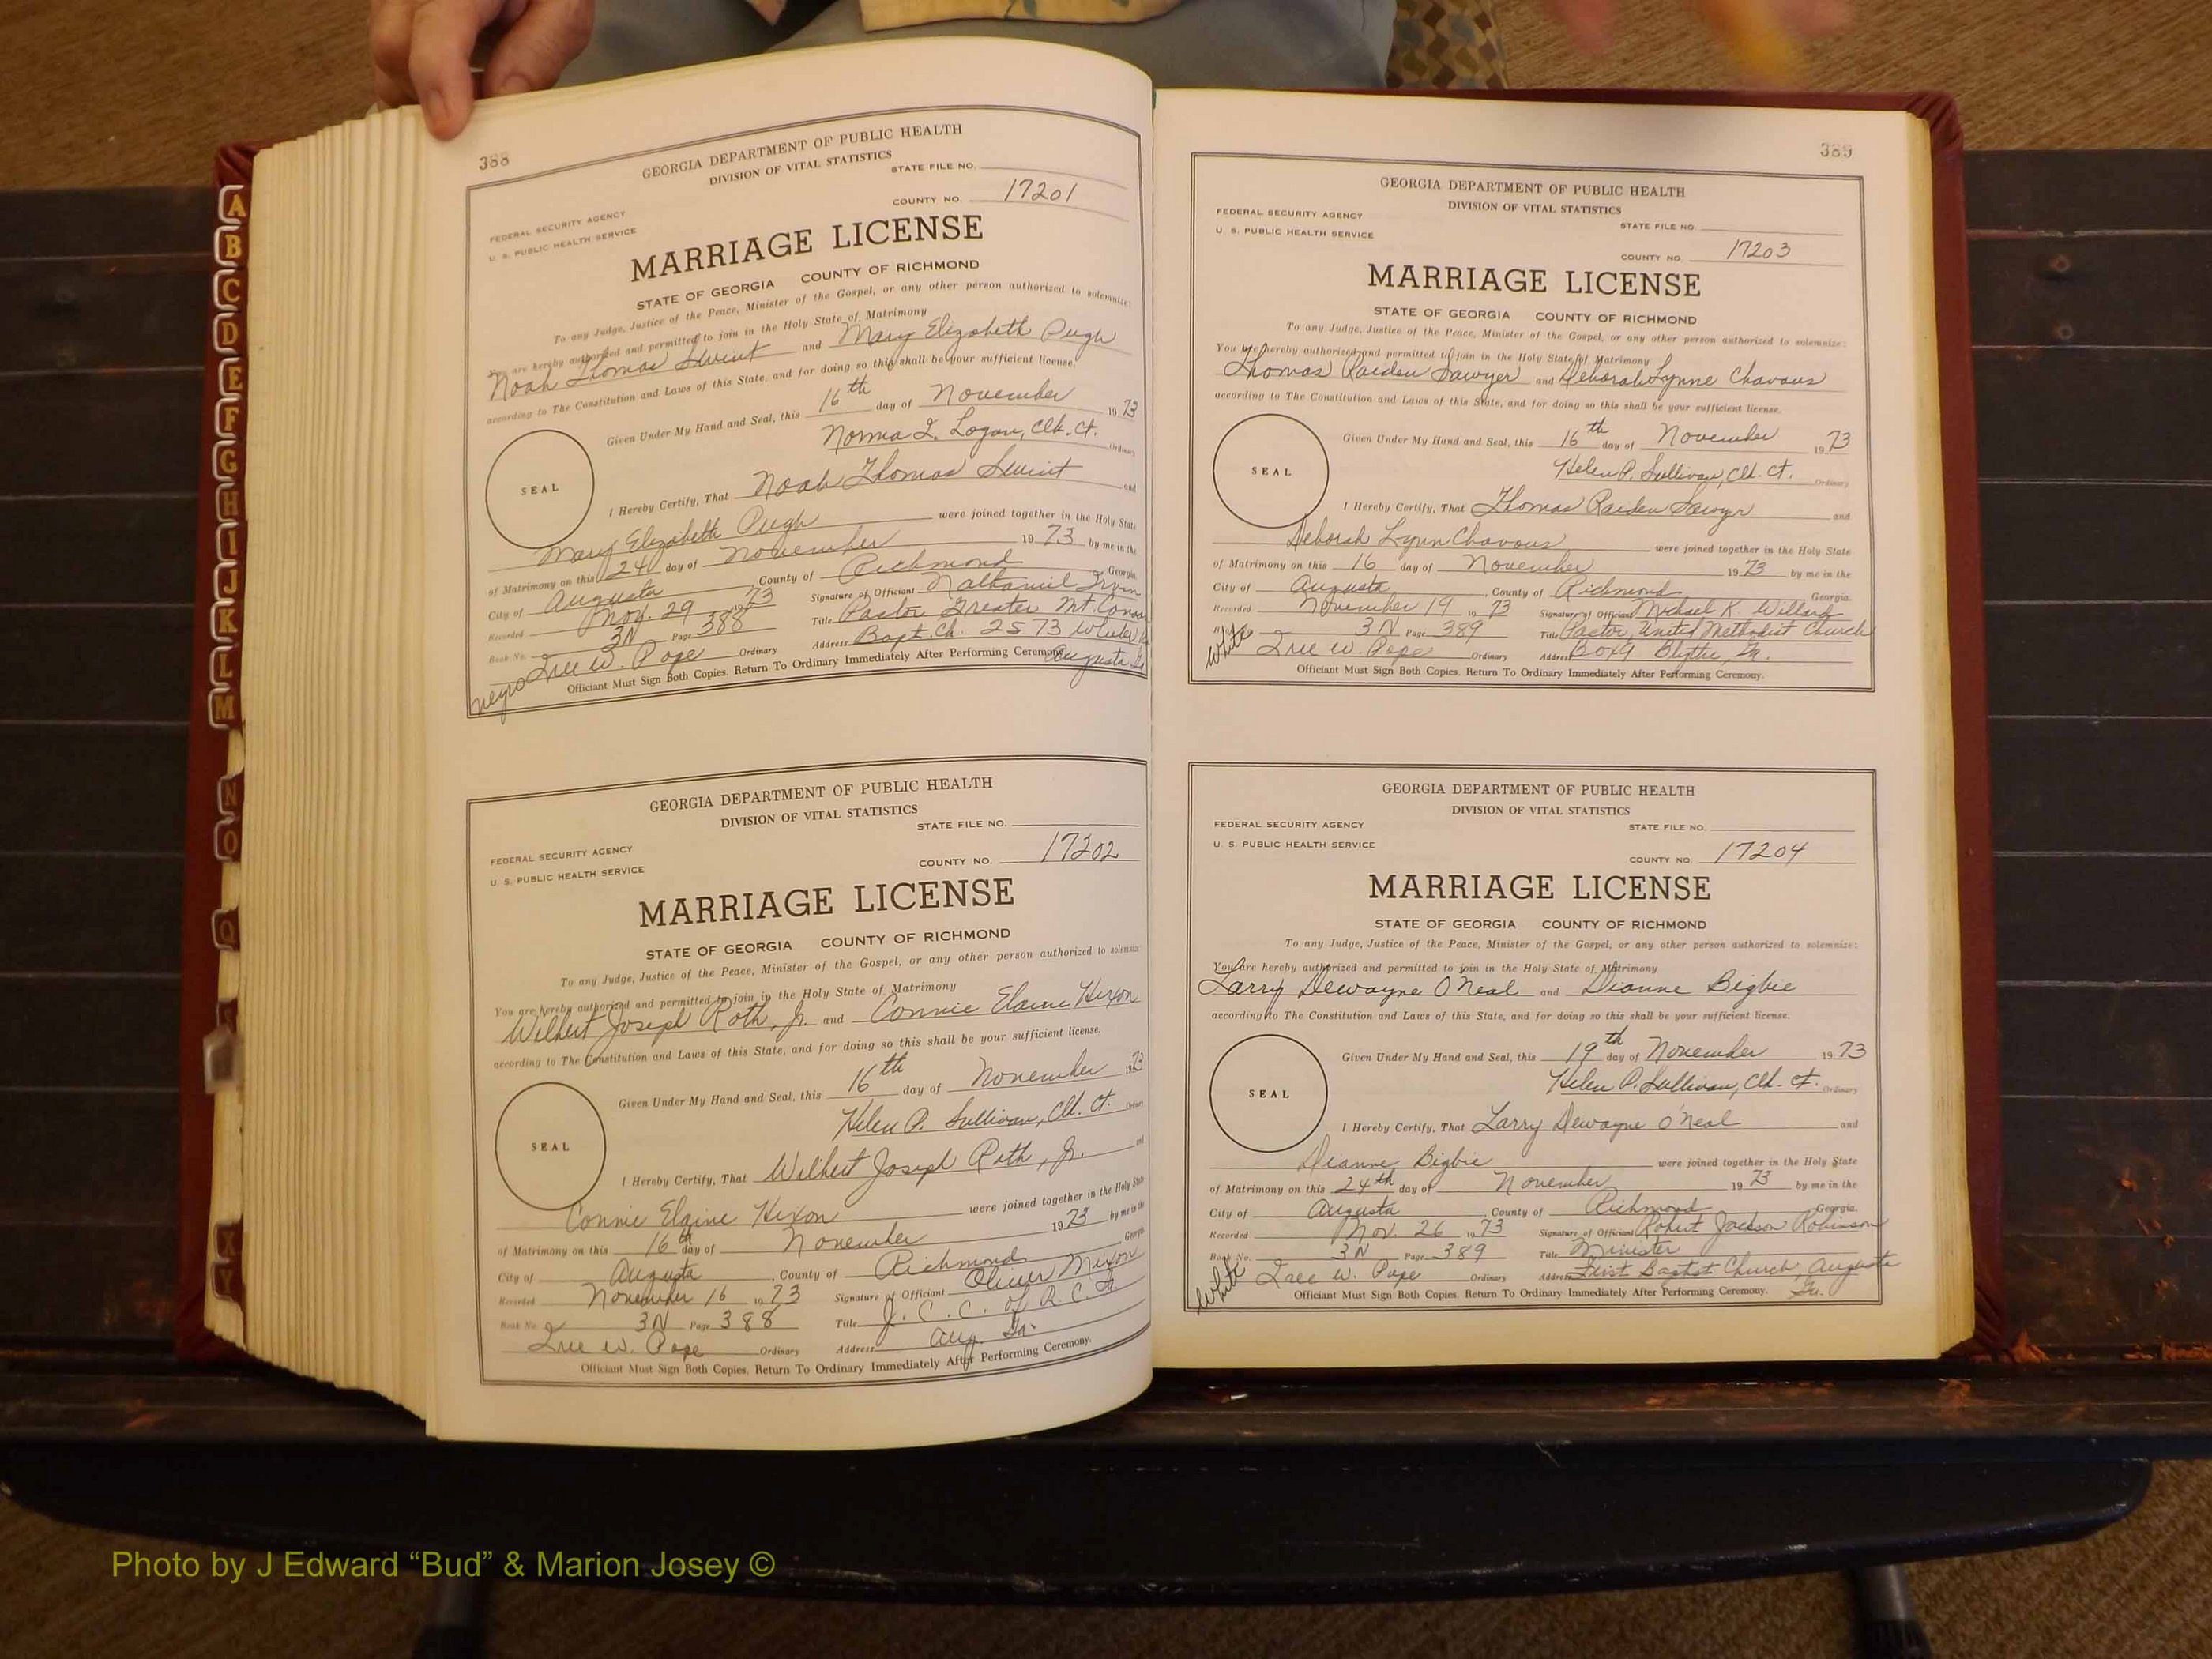 A
B
C
D
E
F
G
H
I
J
K
L
M
N
O
Q
X
Y
388
GEORGIA DEPARTMENT OF PUBLIC HEALTH
DIVISION OF VITAL STATISTICS
STATE FILE NO.
FEDERAL SECURITY AGENCY
U. S. PUBLIC HEALTH SERVICE
COUNTY NO. 17201
MARRIAGE LICENSE
STATE OF GEORGIA COUNTY OF RICHMOND
To any Judge, Justice of the Peace, Minister of the Gospel, or any other person authorized to solemnize:
You are hereby authorized and permitted to join in the Holy State of Matrimony
Noah Thomas Swint and Mary Elizabeth Pugh
according to The Constitution and Laws of this State, and for doing so this shall be your sufficient license.
Given Under My Hand and Seal, this 16th day of November 1973
Norma I. Logan, Clk. Ct. Ordinary
SEAL
I Hereby Certify, That Noah Thomas Swint and
Mary Elizabeth Pugh were joined together in the Holy State
of Matrimony on this 24 day of November 1973 by me in the
City of Augusta, County of Richmond Georgia.
Recorded Nov. 29 1973 Signature of Officiant Nathaniel Irvin
Book No. 3N Page 388 Title Pastor Greater Mt. Canaan
Iree W. Pope Ordinary Address Bapt. Ch. 2573 Wheeler
Augusta Ga
negro
Officiant Must Sign Both Copies. Return To Ordinary Immediately After Performing Ceremony.
GEORGIA DEPARTMENT OF PUBLIC HEALTH
DIVISION OF VITAL STATISTICS
STATE FILE NO.
FEDERAL SECURITY AGENCY
U. S. PUBLIC HEALTH SERVICE
COUNTY NO. 17202
MARRIAGE LICENSE
STATE OF GEORGIA COUNTY OF RICHMOND
To any Judge, Justice of the Peace, Minister of the Gospel, or any other person authorized to solemnize
You are hereby authorized and permitted to join in the Holy State of Matrimony
Wilbert Joseph Roth, Jr. and Connie Elaine Hixon
according to The Constitution and Laws of this State, and for doing so this shall be your sufficient license.
Given Under My Hand and Seal, this 16th day of November 1973
Helen P. Sullivan, Clk. Ct. Ordinary
SEAL
I Hereby Certify, That Wilbert Joseph Roth, Jr. and
Connie Elaine Hixon were joined together in the Holy State
of Matrimony on this 16th day of November 1973 by me in the
City of Augusta, County of Richmond Georgia
Recorded November 16 1973 Signature of Officiant Oliver Mixon
Book No. 3N Page 388 Title J. C. C. of R. C. Ga
Iree W. Pope Ordinary Address Aug. Ga.
Officiant Must Sign Both Copies. Return To Ordinary Immediately After Performing Ceremony.
389
GEORGIA DEPARTMENT OF PUBLIC HEALTH
DIVISION OF VITAL STATISTICS
FEDERAL SECURITY AGENCY
U. S. PUBLIC HEALTH SERVICE
STATE FILE NO.
COUNTY NO. 17203
MARRIAGE LICENSE
STATE OF GEORGIA COUNTY OF RICHMOND
To any Judge, Justice of the Peace, Minister of the Gospel, or any other person authorized to solemnize:
You are hereby authorized and permitted to join in the Holy State of Matrimony
Thomas Raiden Sawyer and Deborah Lynne Chavous
according to The Constitution and Laws of this State, and for doing so this shall be your sufficient license.
Given Under My Hand and Seal, this 16th day of November 1973
Helen P. Sullivan, Clk. Ct. Ordinary
SEAL
I Hereby Certify, That Thomas Raiden Sawyr and
Deborah Lynn Chavous were joined together in the Holy State
of Matrimony on this 16 day of November 1973 by me in the
City of Augusta, County of Richmond Georgia.
Recorded November 19 1973 Signature of Officiant Michael K. Willard
3N Page 389 Title Pastor, United Methodist Church
White Iree W. Pope Ordinary Address Box 9 Blythe, Ga.
Officiant Must Sign Both Copies. Return To Ordinary Immediately After Performing Ceremony.
GEORGIA DEPARTMENT OF PUBLIC HEALTH
DIVISION OF VITAL STATISTICS
FEDERAL SECURITY AGENCY
STATE FILE NO.
U. S. PUBLIC HEALTH SERVICE
COUNTY NO. 17204
MARRIAGE LICENSE
STATE OF GEORGIA COUNTY OF RICHMOND
To any Judge, Justice of the Peace, Minister of the Gospel, or any other person authorized to solemnize:
You are hereby authorized and permitted to join in the Holy State of Matrimony
Larry Dewayne O'Neal and Dianne Bigbie
according to The Constitution and Laws of this State, and for doing so this shall be your sufficient license.
Given Under My Hand and Seal, this 19th day of November 1973
Helen P. Sullivan, Clk. Ct. Ordinary
SEAL
I Hereby Certify, That Larry Dewayne O'Neal and
Dianne Bigbie were joined together in the Holy State
of Matrimony on this 24th day of November 1973 by me in the
City of Augusta, County of Richmond Georgia.
Recorded Nov. 26 1973 Signature of Officiant Robert Jackson Robinson
Book No. 3N Page 389 Title Minister
White Iree W. Pope Ordinary Address First Baptist Church, Augusta
Ga.
Officiant Must Sign Both Copies. Return To Ordinary Immediately After Performing Ceremony.
Photo by J Edward “Bud” & Marion Josey ©